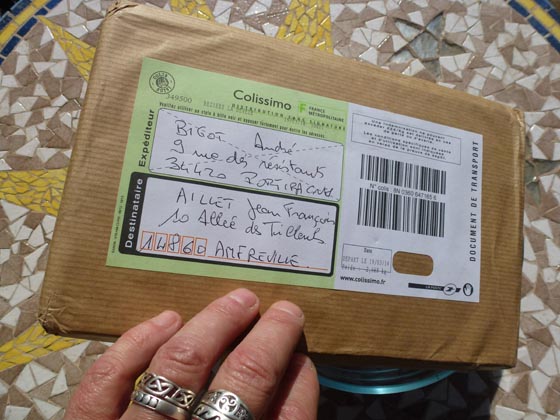 Colissimo
F FRANCE MÉTROPOLITAINE
349500
DISTRIBUTION SANS SIGNATURE
Expéditeur
BIGOT André
9 rue des résistants
34420 PORTIRAGNES
Destinataire
AILLET Jean François
10 Allée des Tilleuls
14860 AMFREVILLE
N° colis 8N 0360 647165 6
DOCUMENT DE TRANSPORT
Suis
DEPOT LE 19/03/14
www.colissimo.fr